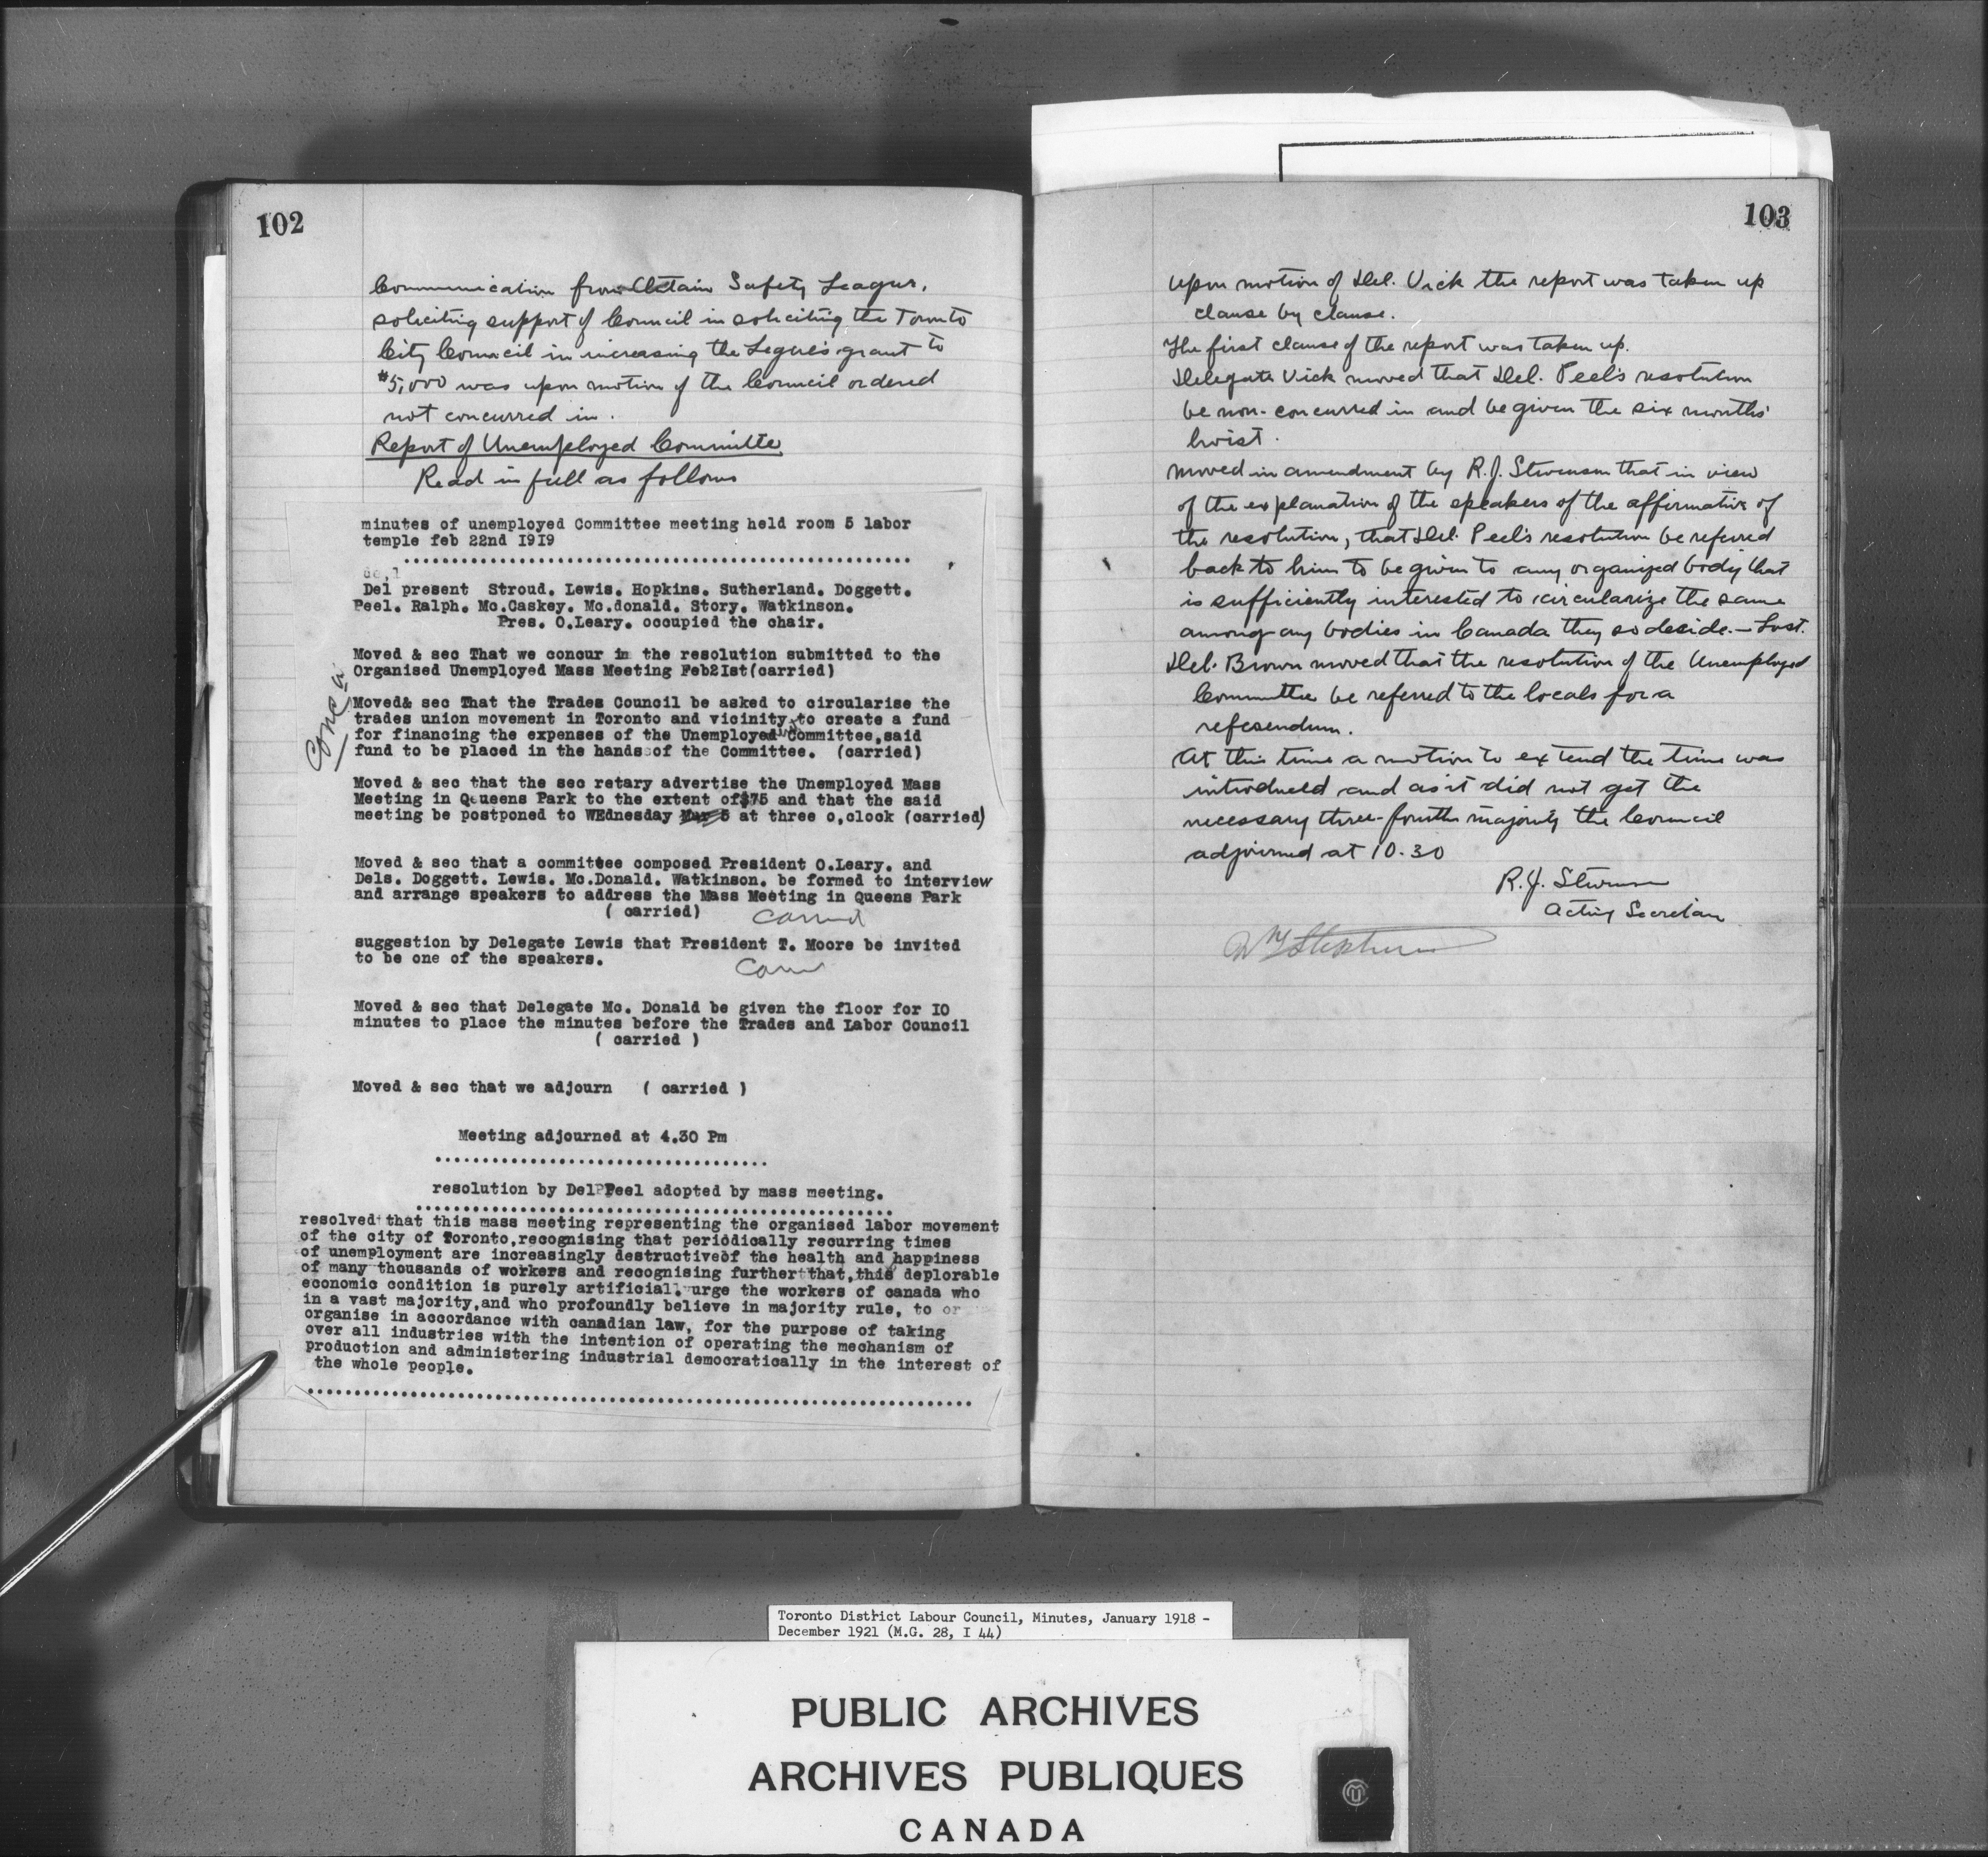 102
Communication from Ontario Safety League,
soliciting support of Council in soliciting the Toronto
City Council in increasing the Legue's grant to
$5,000 was upon motion of the Council ordered
not concurred in.
Report of Unemployed Committe
Read in full as follows
minutes of unemployed Committee meeting held room 5 labor
temple feb 22nd I9I9
Del present Stroud. Lewis. Hopkins. Sutherland. Doggett.
Peel. Ralph. Mc.Caskey. Mc.donald. Story. Watkinson.
Pres. O.Leary. occupied the chair.
Moved & sec That we concur in the resolution submitted to the
Organised Unemployed Mass Meeting Feb2Ist(carried)
Moved& sec That the Trades Council be asked to circularise the
trades union movement in Toronto and vicinity to create a fund
for financing the expenses of the Unemployed Committee,said
fund to be placed in the hands of the Committee. (carried)
Moved & sec that the sec retary advertise the Unemployed Mass
Meeting in Queens Park to the extent of$75 and that the said
meeting be postponed to WEdnesday Mar 5 at three o,clock (carried)
Moved & sec that a committee composed President O.Leary. and
Dels. Doggett. Lewis. Mc.Donald. Watkinson. be formed to interview
and arrange speakers to address the Mass Meeting in Queens Park
( carried) carried
suggestion by Delegate Lewis that President T. Moore be invited
to be one of the speakers.
Moved & sec that Delegate Mc. Donald be given the floor for IO
minutes to place the minutes before the Trades and Labor Council
( carried )
Moved & sec that we adjourn ( carried )
Meeting adjourned at 4.30 Pm
resolution by Del Peel adopted by mass meeting.
resolved that this mass meeting representing the organised labor movement
of the city of Toronto,recognising that periodically recurring times
of unemployment are increasingly destructiveof the health and happiness
of many thousands of workers and recognising further that,this deplorable
economic condition is purely artificial, urge the workers of canada who
in a vast majority,and who profoundly believe in majority rule, to or
organise in accordance with canadian law, for the purpose of taking
over all industries with the intention of operating the mechanism of
production and administering industrial democratically in the interest of
the whole people.
103
Upon motion of Del. Vick the report was taken up
clause by clause.
The first clause of the report was taken up.
Delegate Vick moved that Del. Peel's resolution
be non-concurred in and be given the six months'
hoist.
Moved in amendment by R.J. Stevenson that in view
of the explanation of the speakers of the affirmative of
the resolution, that Del. Peel's resolution be referred
back to him to be given to any organized body that
is sufficiently interested to circularize the same
among any bodies in Canada they so decide. - Lost.
Del. Brown moved that the resolution of the Unemployed
Committee be referred to the locals for a
referendum.
At this time a motion to extend the time was
introduced and as it did not get the
necessary three-fourths majority the Council
adjourned at 10.30
R.J. Stevenson
Acting Secretary
Toronto District Labour Council, Minutes, January 1918 -
December 1921 (M.G. 28, I 44)
PUBLIC ARCHIVES
ARCHIVES PUBLIQUES
CANADA